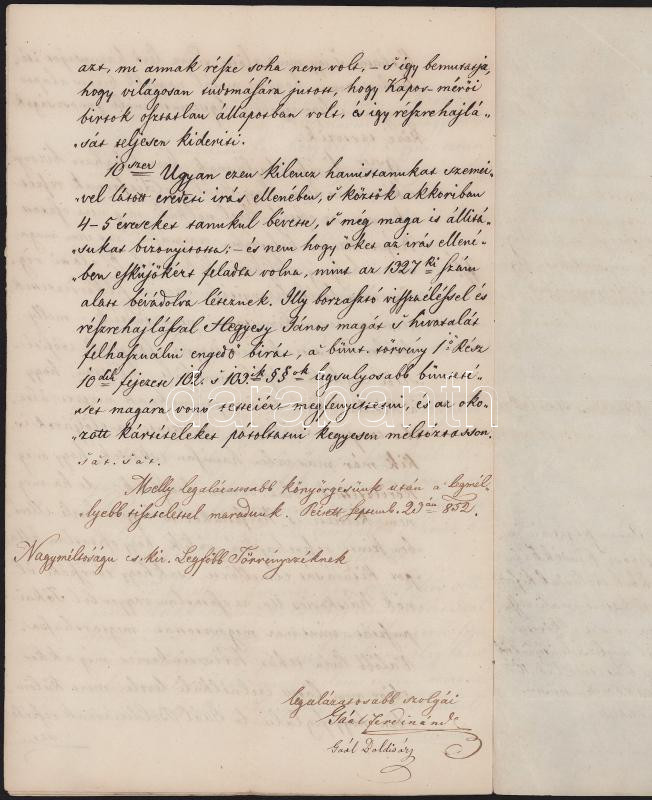 azt, mi annak része soha nem volt, – s így bemutatja,
hogy világosan tudomására jutott, hogy Kapos-mérői
birtok osztatlan állapotban volt, és így részrehajlá-
sát teljesen kideríti.
10szer Ugyan ezen kilencz hamistanukat szemei-
vel látott eredeti irás ellenében, s köztök akkoriban
4–5 éveseket tanukul bévette, s még maga is állitá-
sukat bizonyitotta; – és nem hogy őket az irás elleni-
ben esküjökért feladta volna, mint az 1327ki szám
alatt bévádolva léteznek. Illy borzasztó visszaéléssel és
részrehajlással Hegyesy János magát s hivatalát
felhasználni engedő birát, a bünt. törvény 1ő Rész
10dik fejezete 102. s 103ik §§ok legsulyosabb bünteté-
sét magára vonó tetteiért megfenyittetni, és az oko-
zott kártételeket pótoltatni kegyesen méltóztasson.
s át. s át.
Melly legalázatosabb könyörgésünk után a legmél-
lyebb tisztelettel maradunk. Pécsett Septemb. 29án 852.
Nagyméltóságu cs. kir. Legfőbb Törvényszéknek
legalázatosabb szolgái
Gaál Ferdinánd
Gaál Boldisár
darabanth